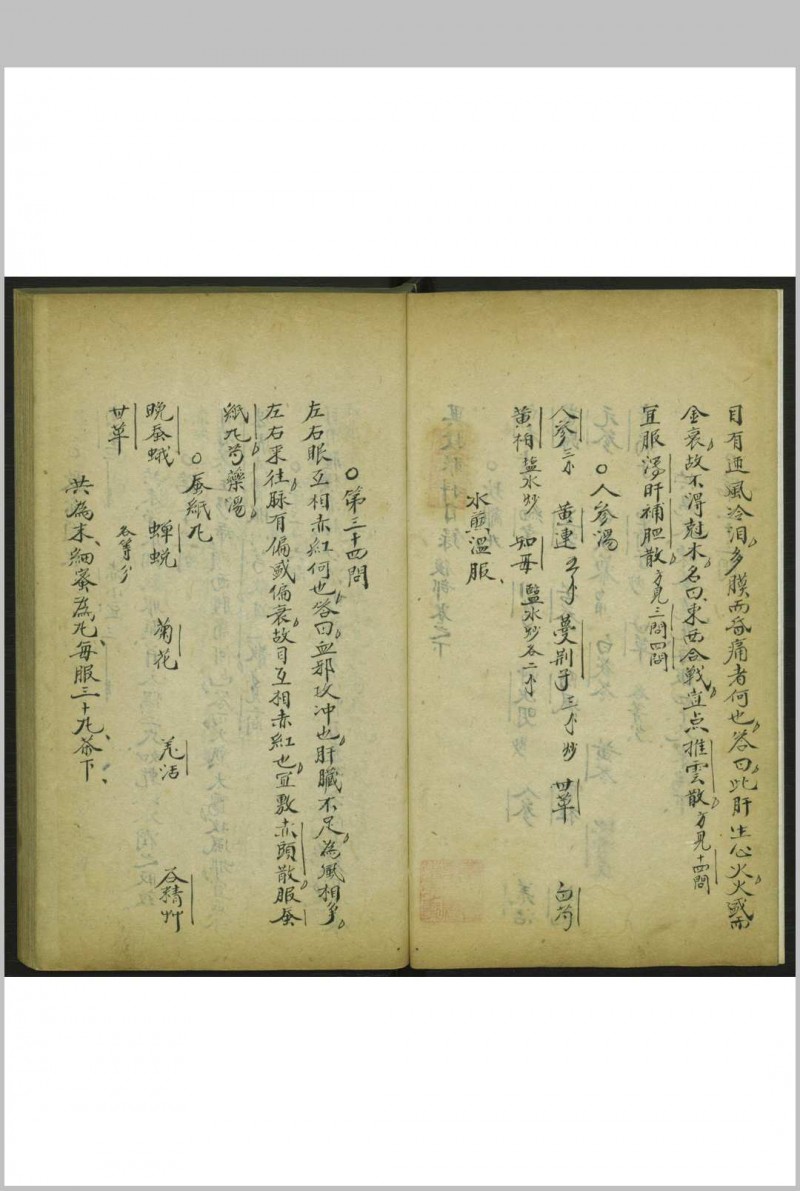 目有迎風冷泪多膜而昏痛者何也答曰此肝生心火火盛而
金衰故不淂尅木名曰東西合戰宜点推雲散方見十四問
宜服湯肝補胆散方見三問四問
○人參湯
人參三个 黄連五个 蔓荆子三个炒 甘草 白芍
黄柏盐水炒 知母盬水炒各二个
水煎溫服
○第三十四問
左右眼互相赤紅何也答曰血邪攻冲也肝臟不足為風相多
左右來往脉有偏盛偏衰故目互相赤紅也宜敷赤頭散服蚕
紙丸芍藥湯
○蚕紙丸
晩蚕蛾 蟬蛻 菊花 羌活 谷精艸
甘草 各等分
共為末細蜜為丸每服三十丸茶下